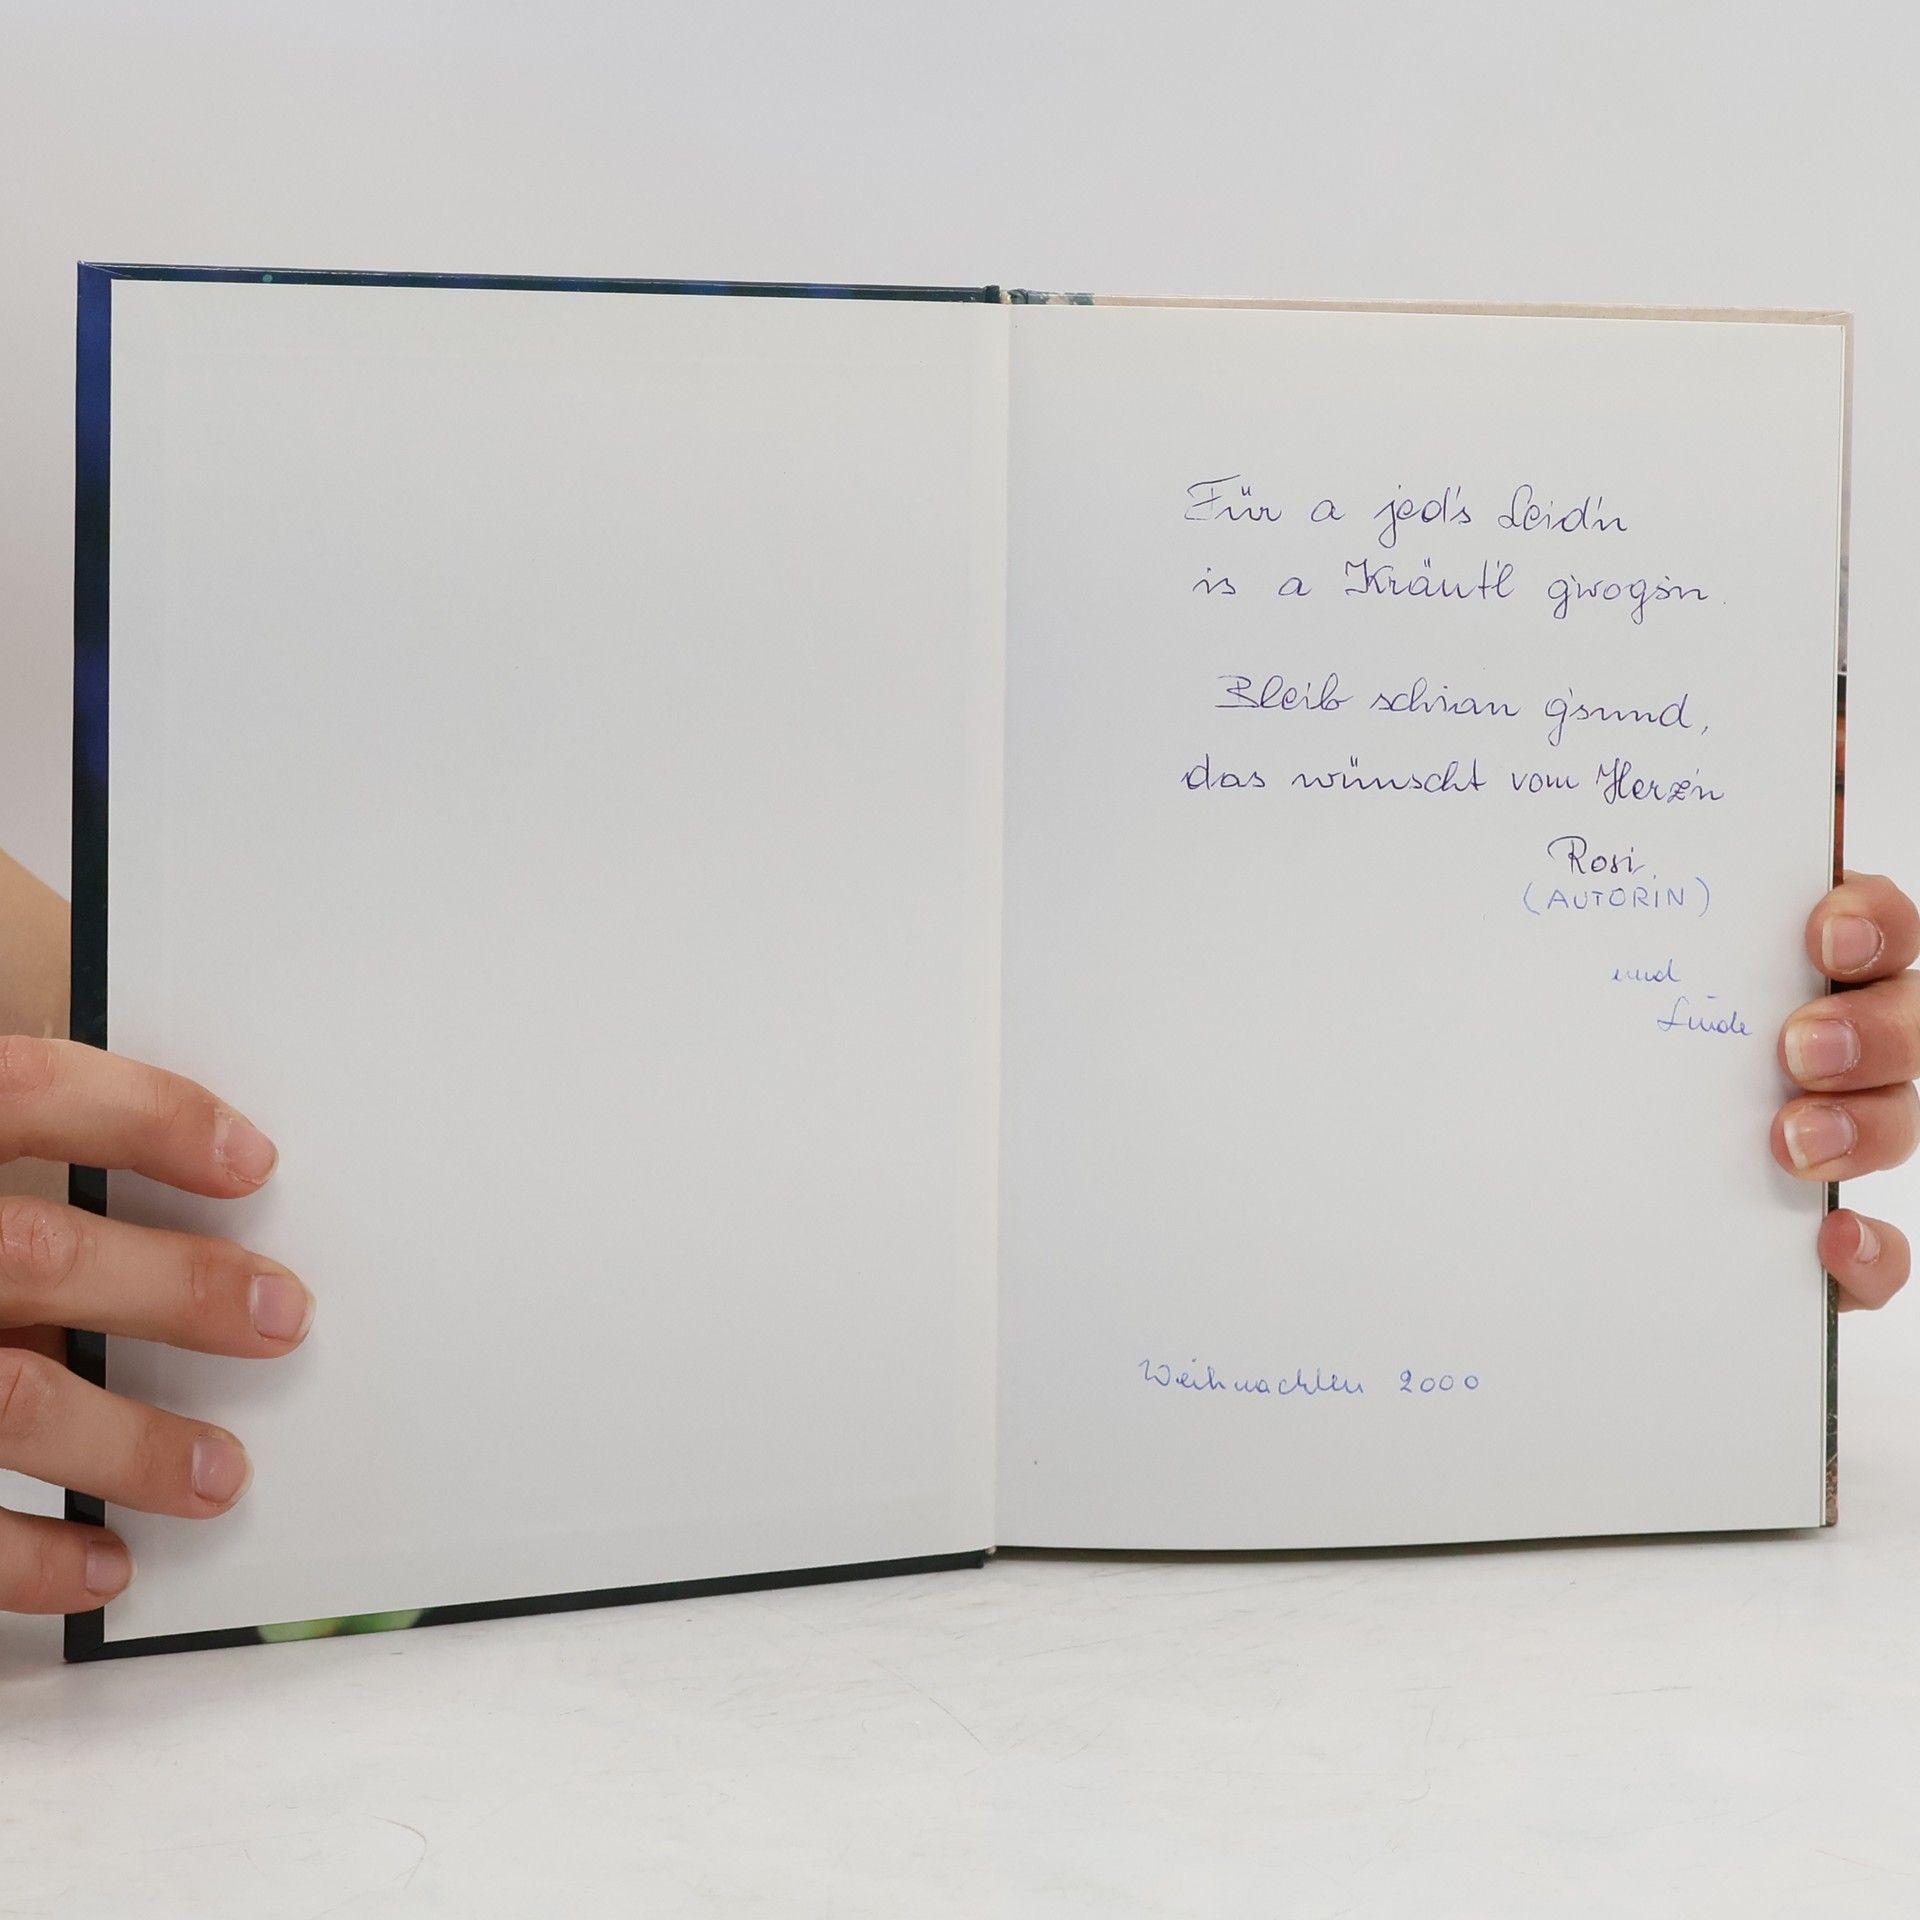 Für a jed's Leid'n
is a Kräut'l g'wogs'n.
Bleib schian g'sund,
das wünscht vom Herz'n
Rosi
(AUTORIN)
und
Linde
Weihnachten 2000